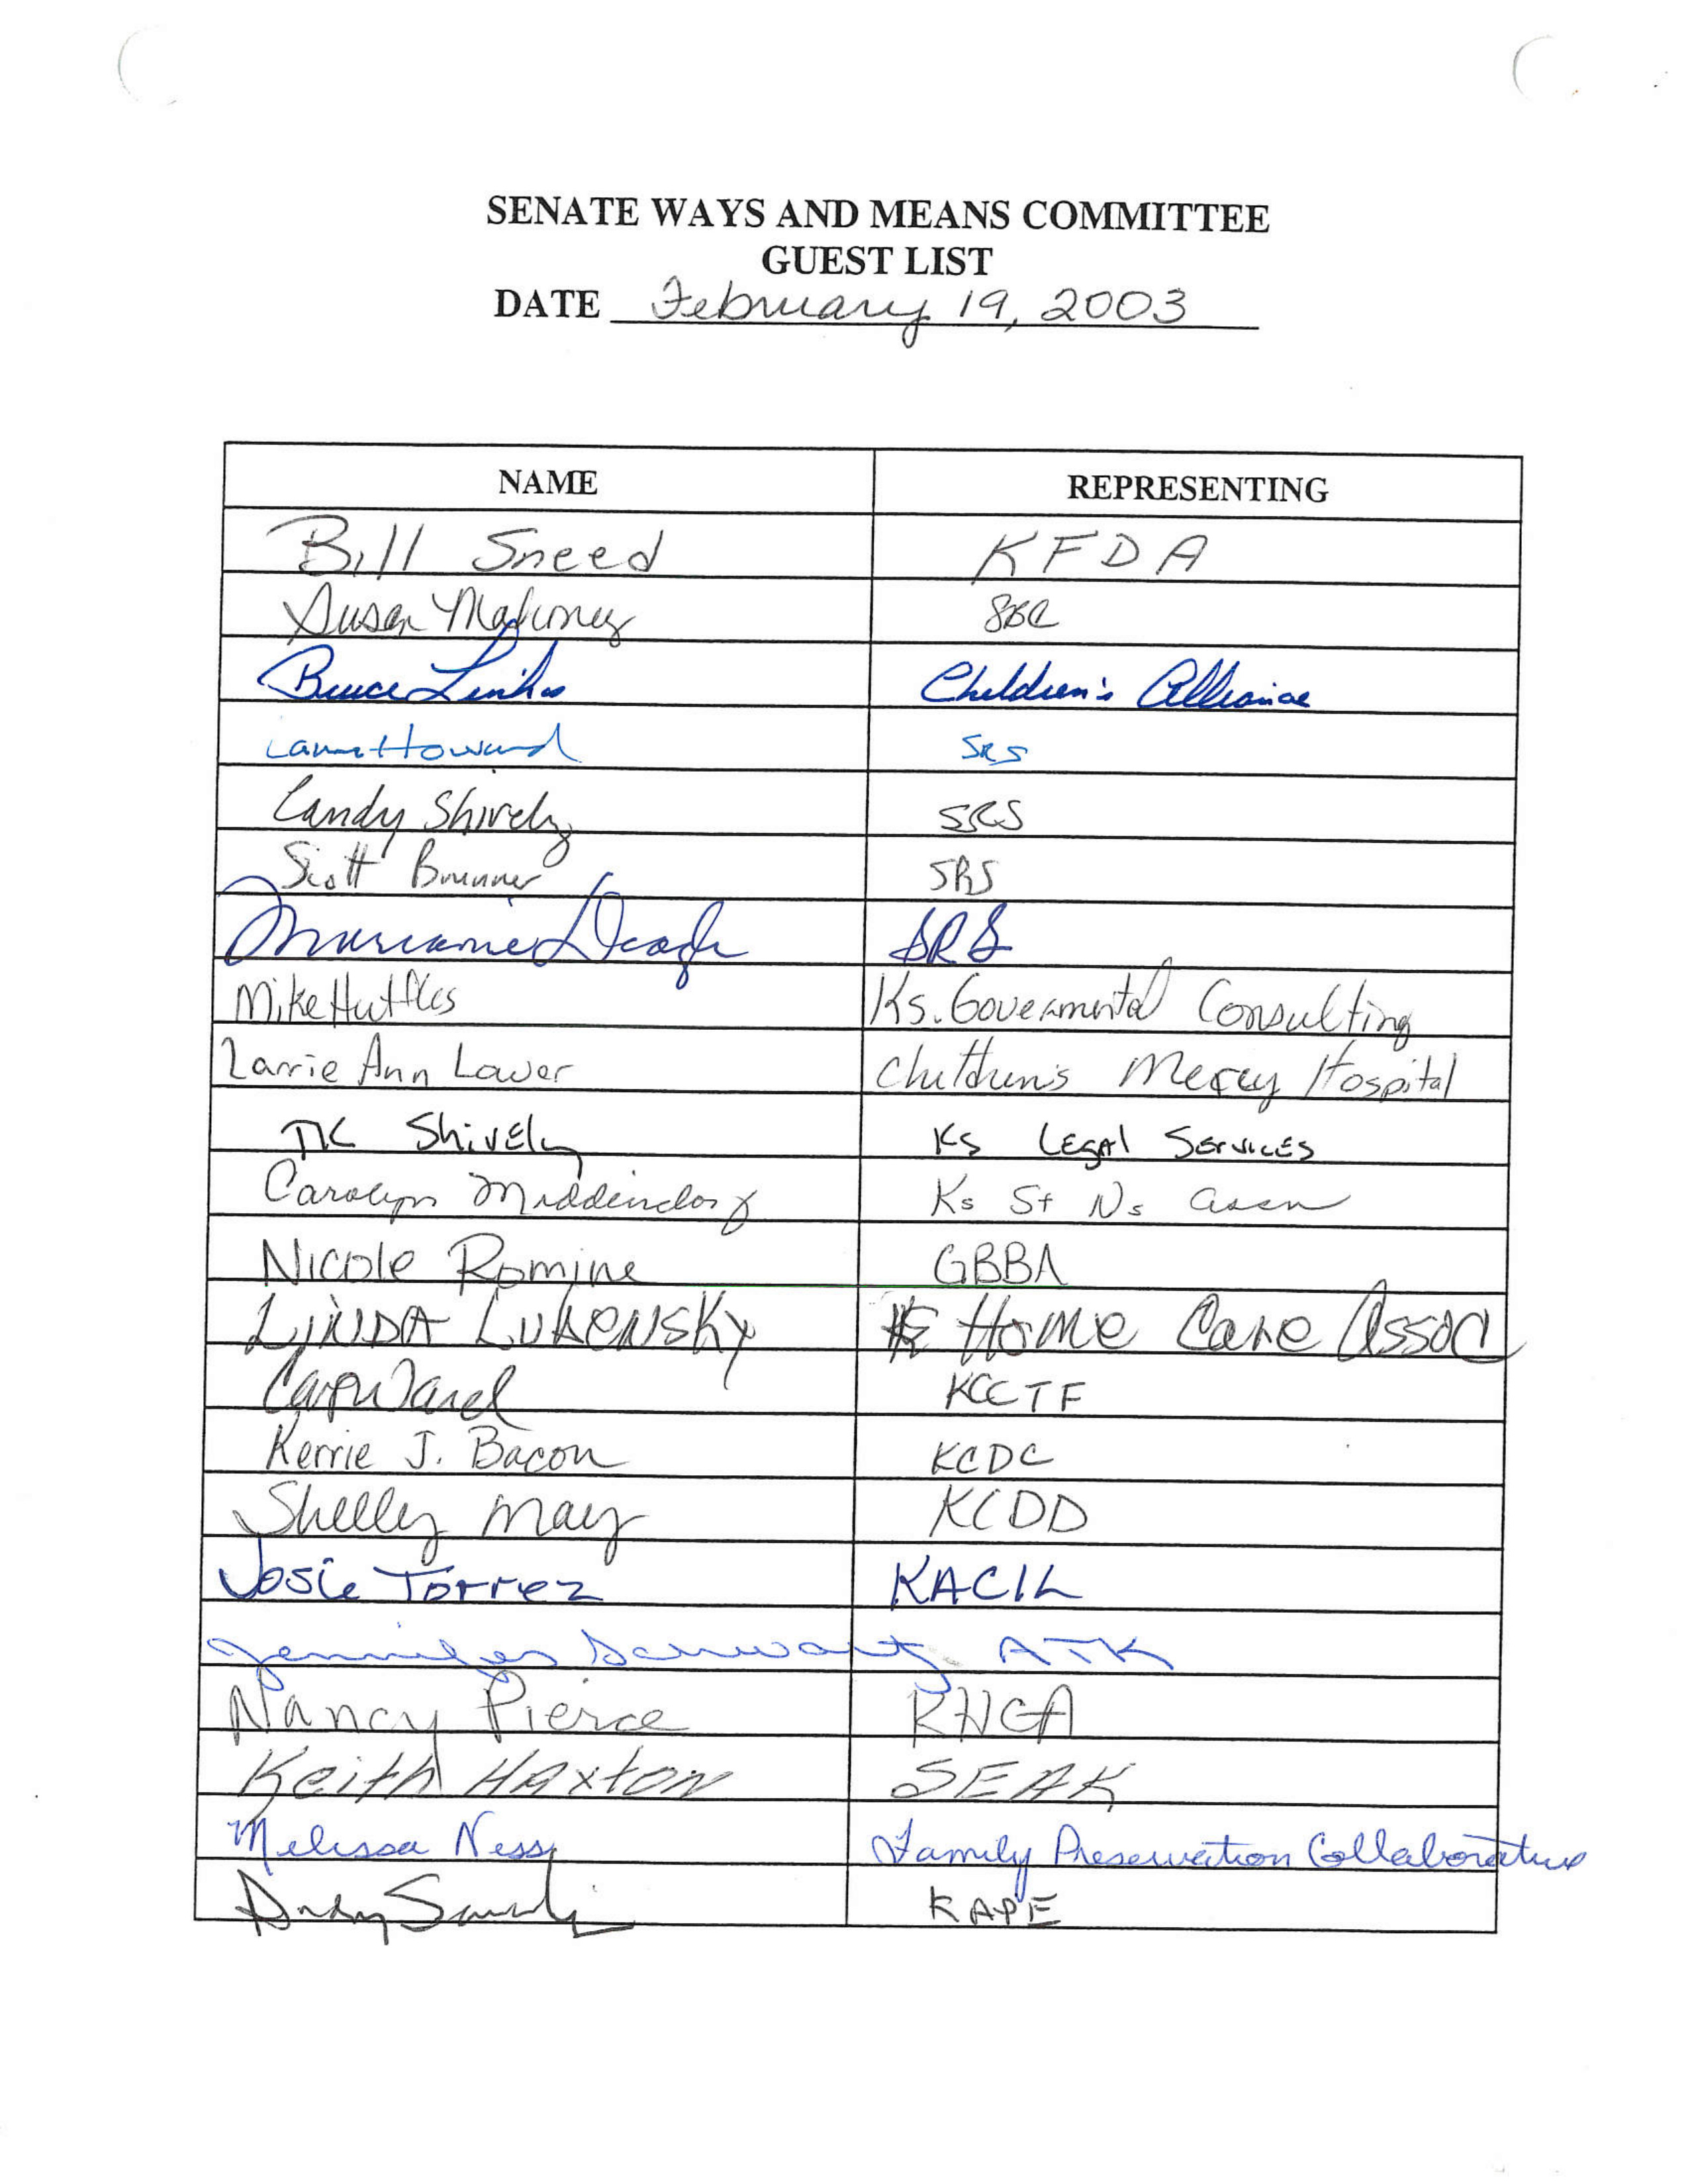 SENATE WAYS AND MEANS COMMITTEE
GUEST LIST
DATE February 19, 2003
NAME REPRESENTING
Bill Sneed KFDA
Susan Mahoney
Bruce Linhos Children's Alliance
Laura Howard SRS
Candy Shively SRS
Scott Brunner SRS
Marianne Deagle SRS
Mike Huttles Ks. Governmental Consulting
Larrie Ann Lower Children's Mercy Hospital
TK Shively KS LEGAl SERVICES
Carolyn Middendorf Ks St Ns assn
Nicole Romine GBBA
LINDA LUBENSKY KS Home Care Assoc
Ward KCCTF
Kerrie J. Bacon KCDC
Shelley May KCDD
Josie Torrez KACIL
Jennifer Schwartz ATK
Nancy Pierce KHCA
Keith HAxtON SEAK
Melissa Ness Family Preservation Collaborative
Andy KAPE